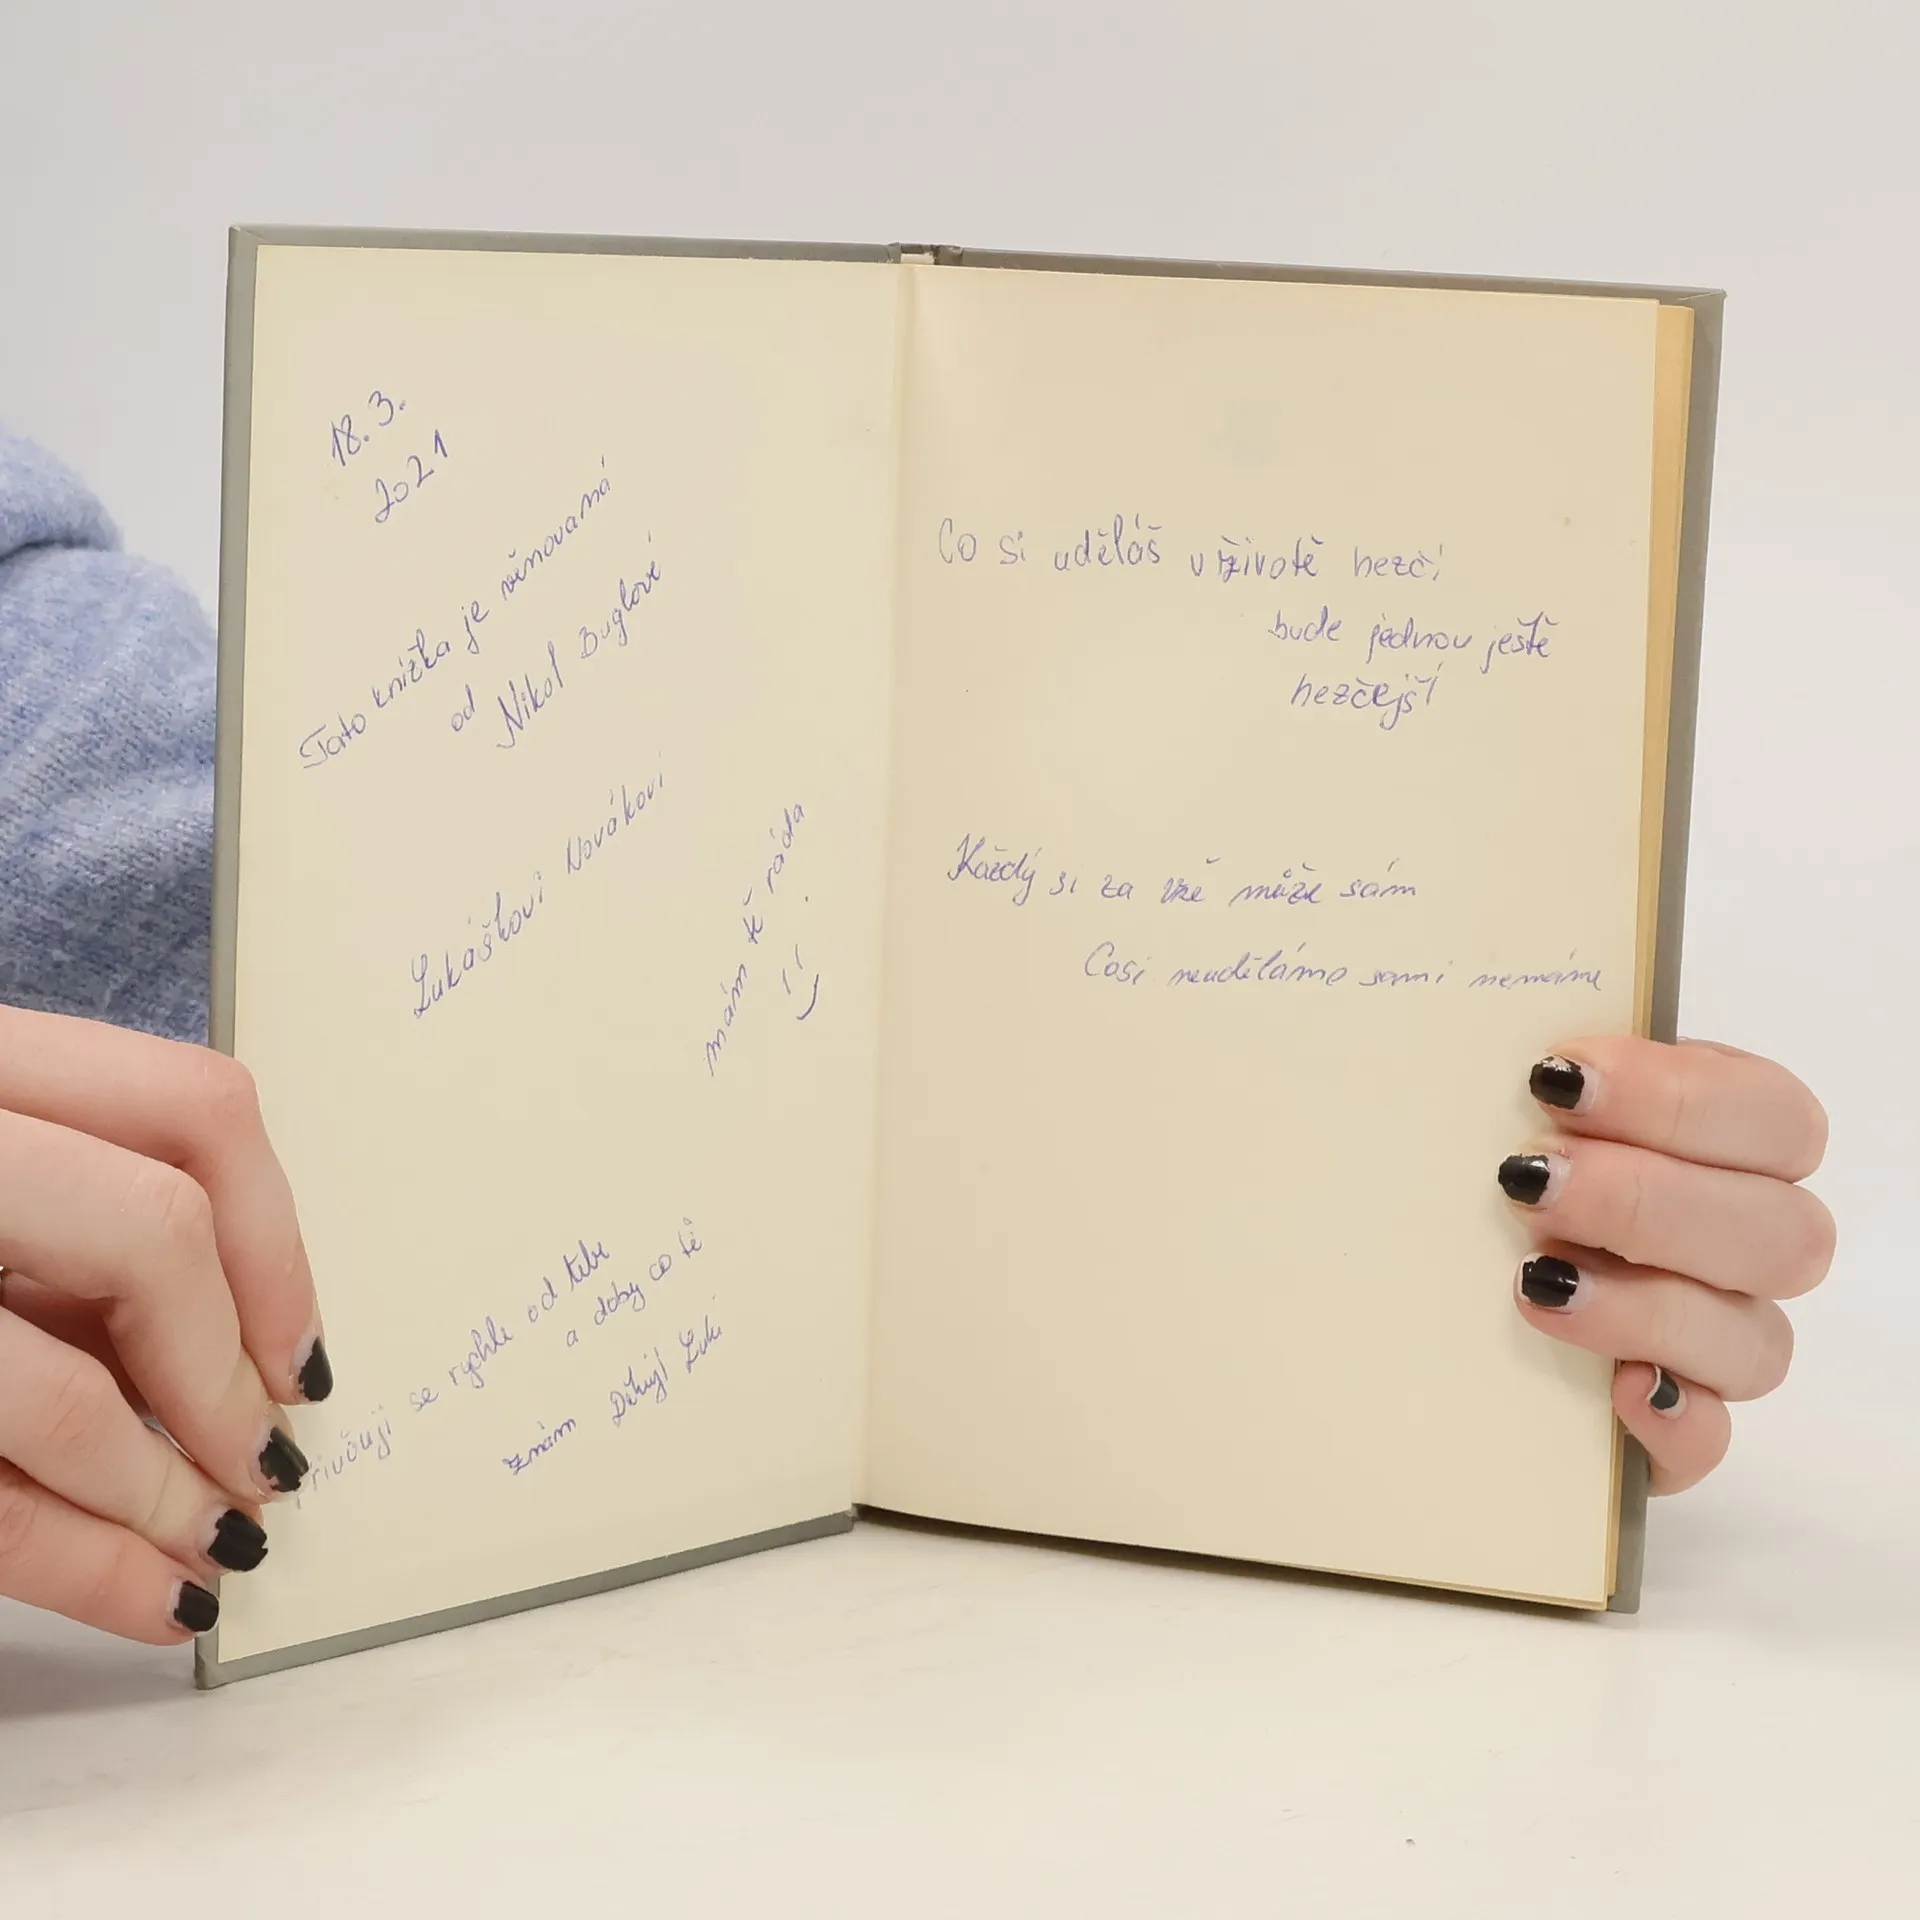 18.3.
2021
Tato knížka je věnovaná
od Nikol Buglové
Lukáškovi Novákovi
mám tě ráda
přiučuji se rychle od tebe
a doby co tě
znám Děkuji Luki
Co si uděláš v životě hezčí
bude jednou ještě
hezčejší
Každý si za vše může sám
Cosi neuděláme sami nemáme